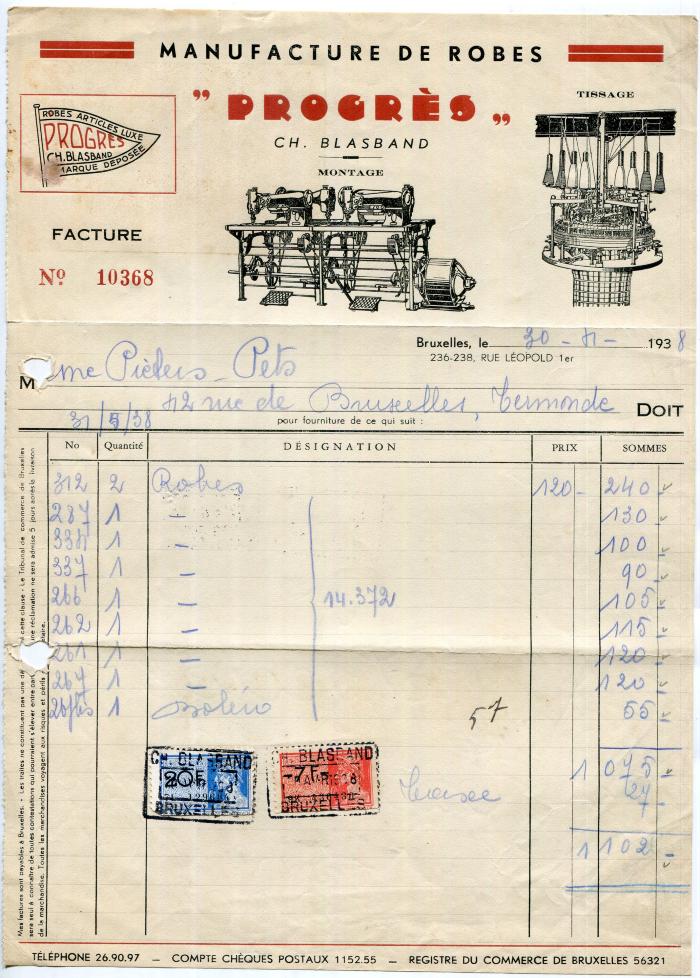 MANUFACTURE DE ROBES
" PROGRÈS "
CH. BLASBAND
TISSAGE
MONTAGE
ROBES ARTICLES LUXE
PROGRÈS
CH. BLASBAND
MARQUE DÉPOSÉE
FACTURE
Nº 10368
Bruxelles, le 30 - 4 - 1938
236-238, RUE LÉOPOLD 1er
Mme Pieters - Pets
42 rue de Bruxelles, Termonde DOIT
31/5/38 pour fourniture de ce qui suit :
No Quantité DÉSIGNATION PRIX SOMMES
312 2 Robes 120 - 240
287 1 - 130
3381 1 - 100
337 1 - 90
266 1 - 14.372 105
262 1 - 115
261 1 - 120
267 1 - 120
1 Boléro 55
57
1 075
27
1 102 -
CH. BLASBAND
20F
BRUXELLES
CH. BLASBAND
7F
BRUXELLES
Mes factures sont payables à Bruxelles. - Les traites ne constituent pas une cette clause - Le Tribunal de commerce de Bruxelles
sera seul à connaître de toutes contestations qui pourraient s'élever entre une réclamation ne sera admise 5 jours après la livraison
de la marchandise. Toutes les marchandises voyagent aux risques et périls
TÉLÉPHONE 26.90.97 — COMPTE CHÈQUES POSTAUX 1152.55 — REGISTRE DU COMMERCE DE BRUXELLES 56321